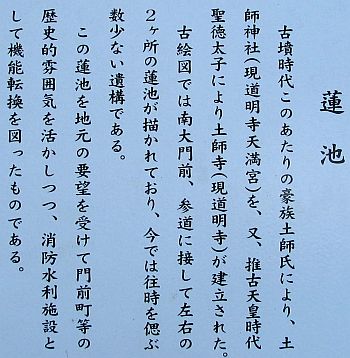 蓮池
古墳時代このあたりの豪族土師氏により、土
師神社(現道明寺天満宮)を、又、推古天皇時代
聖徳太子により土師寺(現道明寺)が建立された。
古絵図では南大門前、参道に接して左右の
２ヶ所の蓮池が描かれており、今では往時を偲ぶ
数少ない遺構である。
この蓮池を地元の要望を受けて門前町等の
歴史的雰囲気を活かしつつ、消防水利施設と
して機能転換を図ったものである。